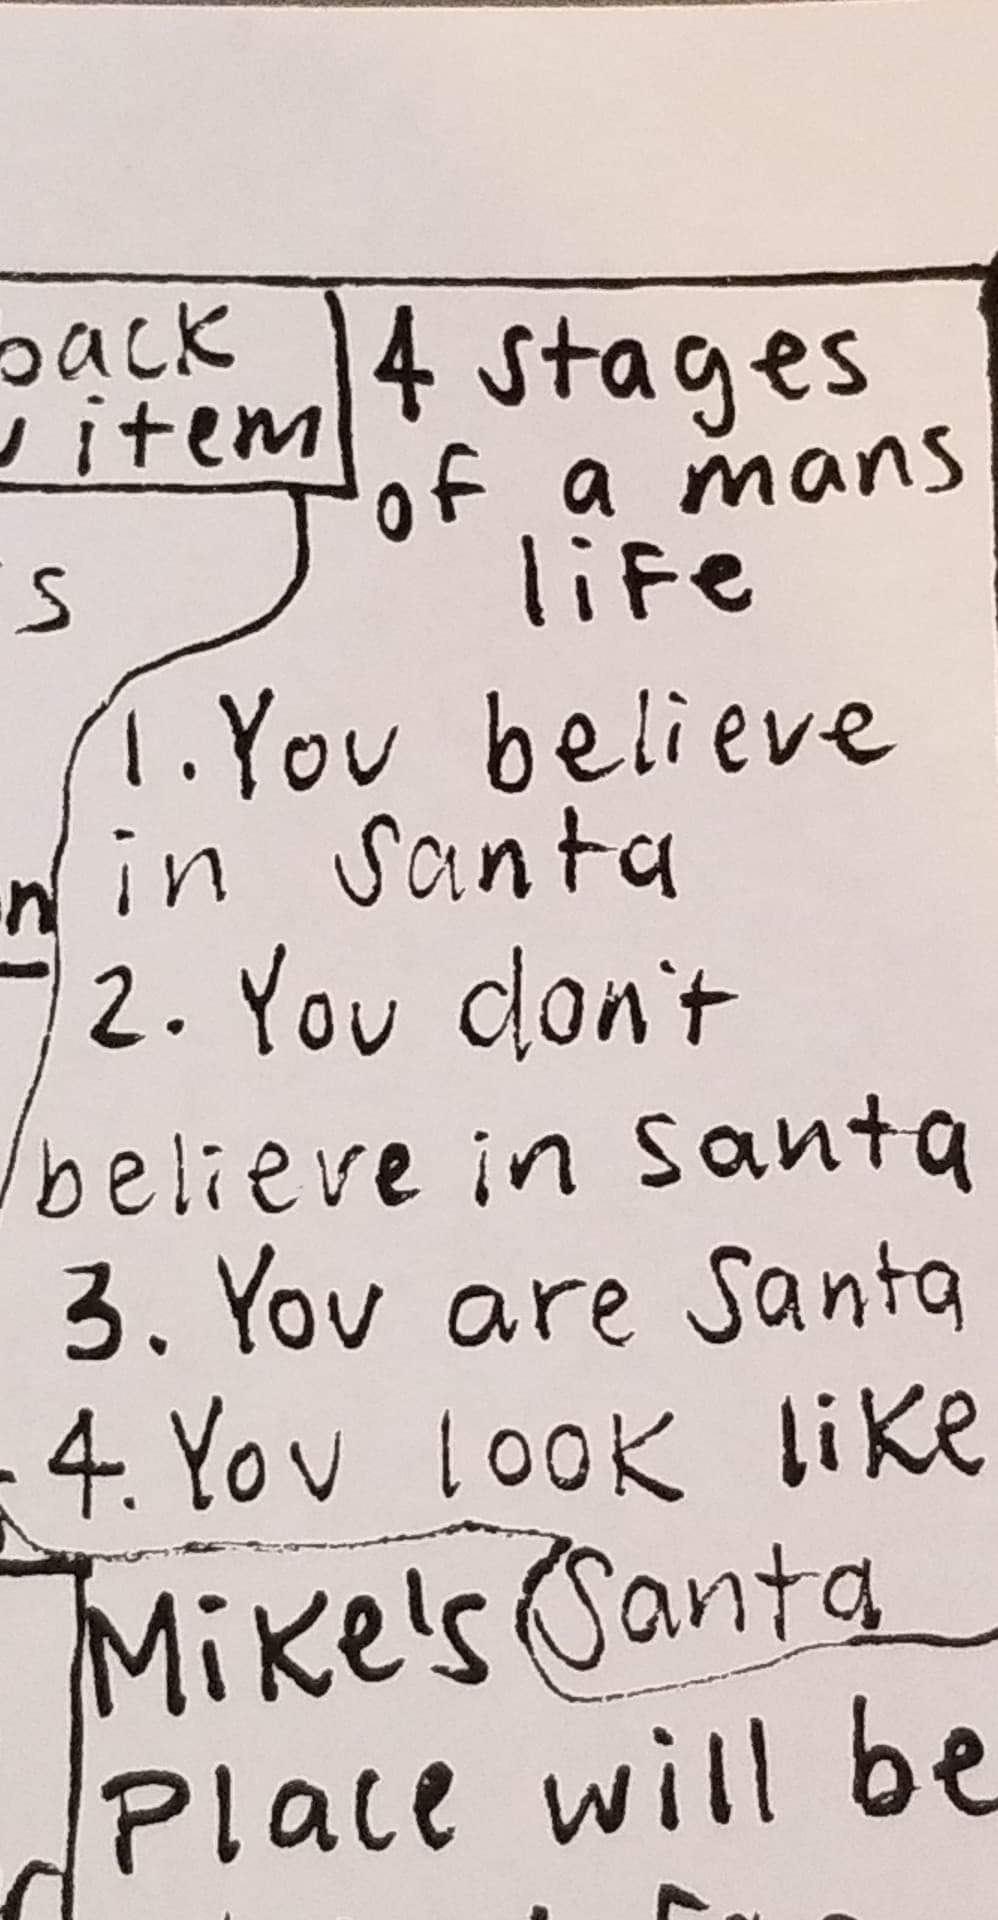 back
item
4 stages
of a mans
life
s
1. You believe
in Santa
2. You don't
believe in santa
3. You are Santa
4. You look like
Santa
Mike's
Place will be